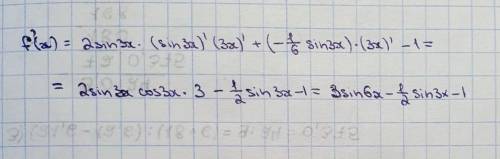 f'(x) = 2sin3x · (sin3x)' (3x)' + (-1/6 sin3x) · (3x)' - 1 =
= 2sin3x cos3x · 3 - 1/2 sin3x - 1 = 3sin6x - 1/2 sin3x - 1